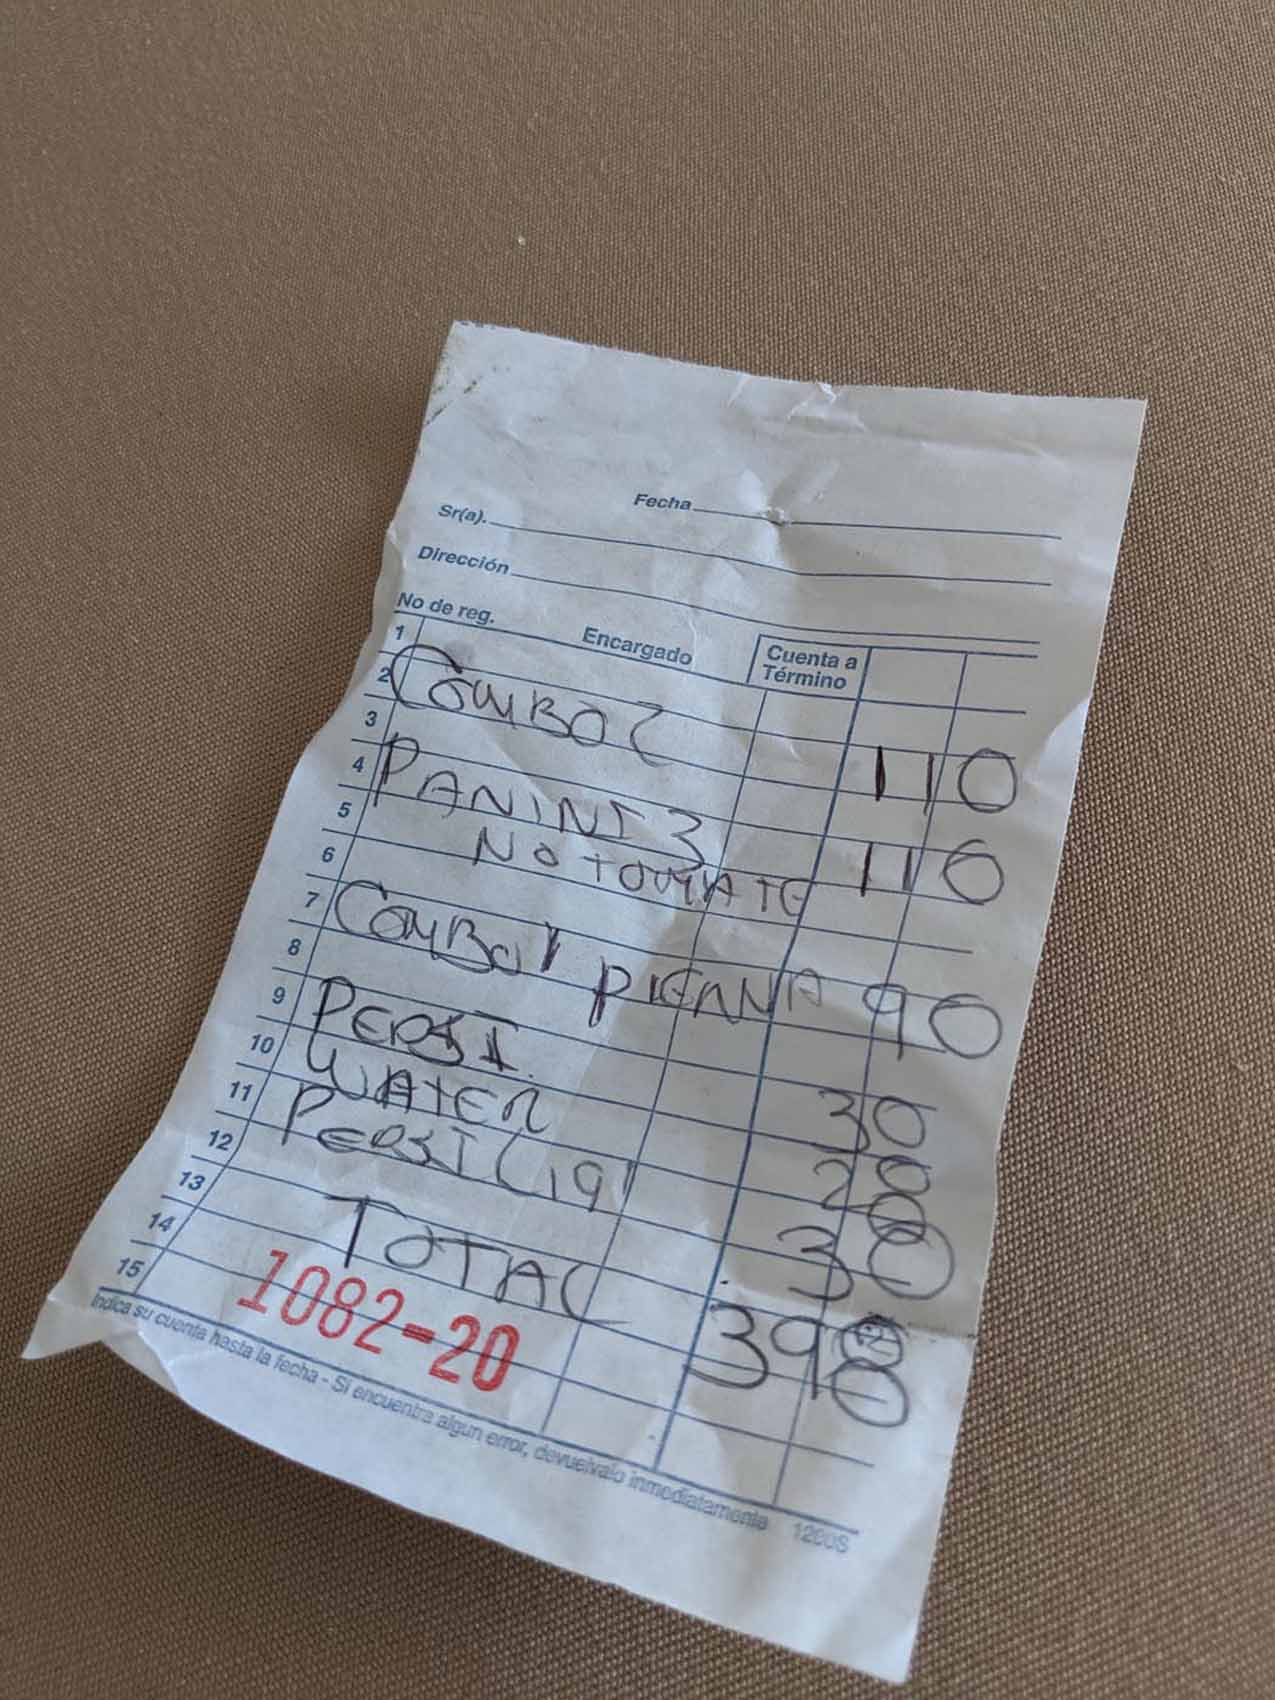 Fecha
Sr(a).
Dirección
No de reg. Encargado Cuenta a Término
1
2 COMBO 2 110
3
4 PANINI 3 110
5 NO TOMATE
6
7 COMBO 1 PIERNA 90
8
9 PEPSI 30
10 WATER
11 PEPSI LIG 30
12
13 TOTAL
14 1082-20
15
Indica su cuenta hasta la fecha - Si encuentra algun error, devuelvalo inmediatamente